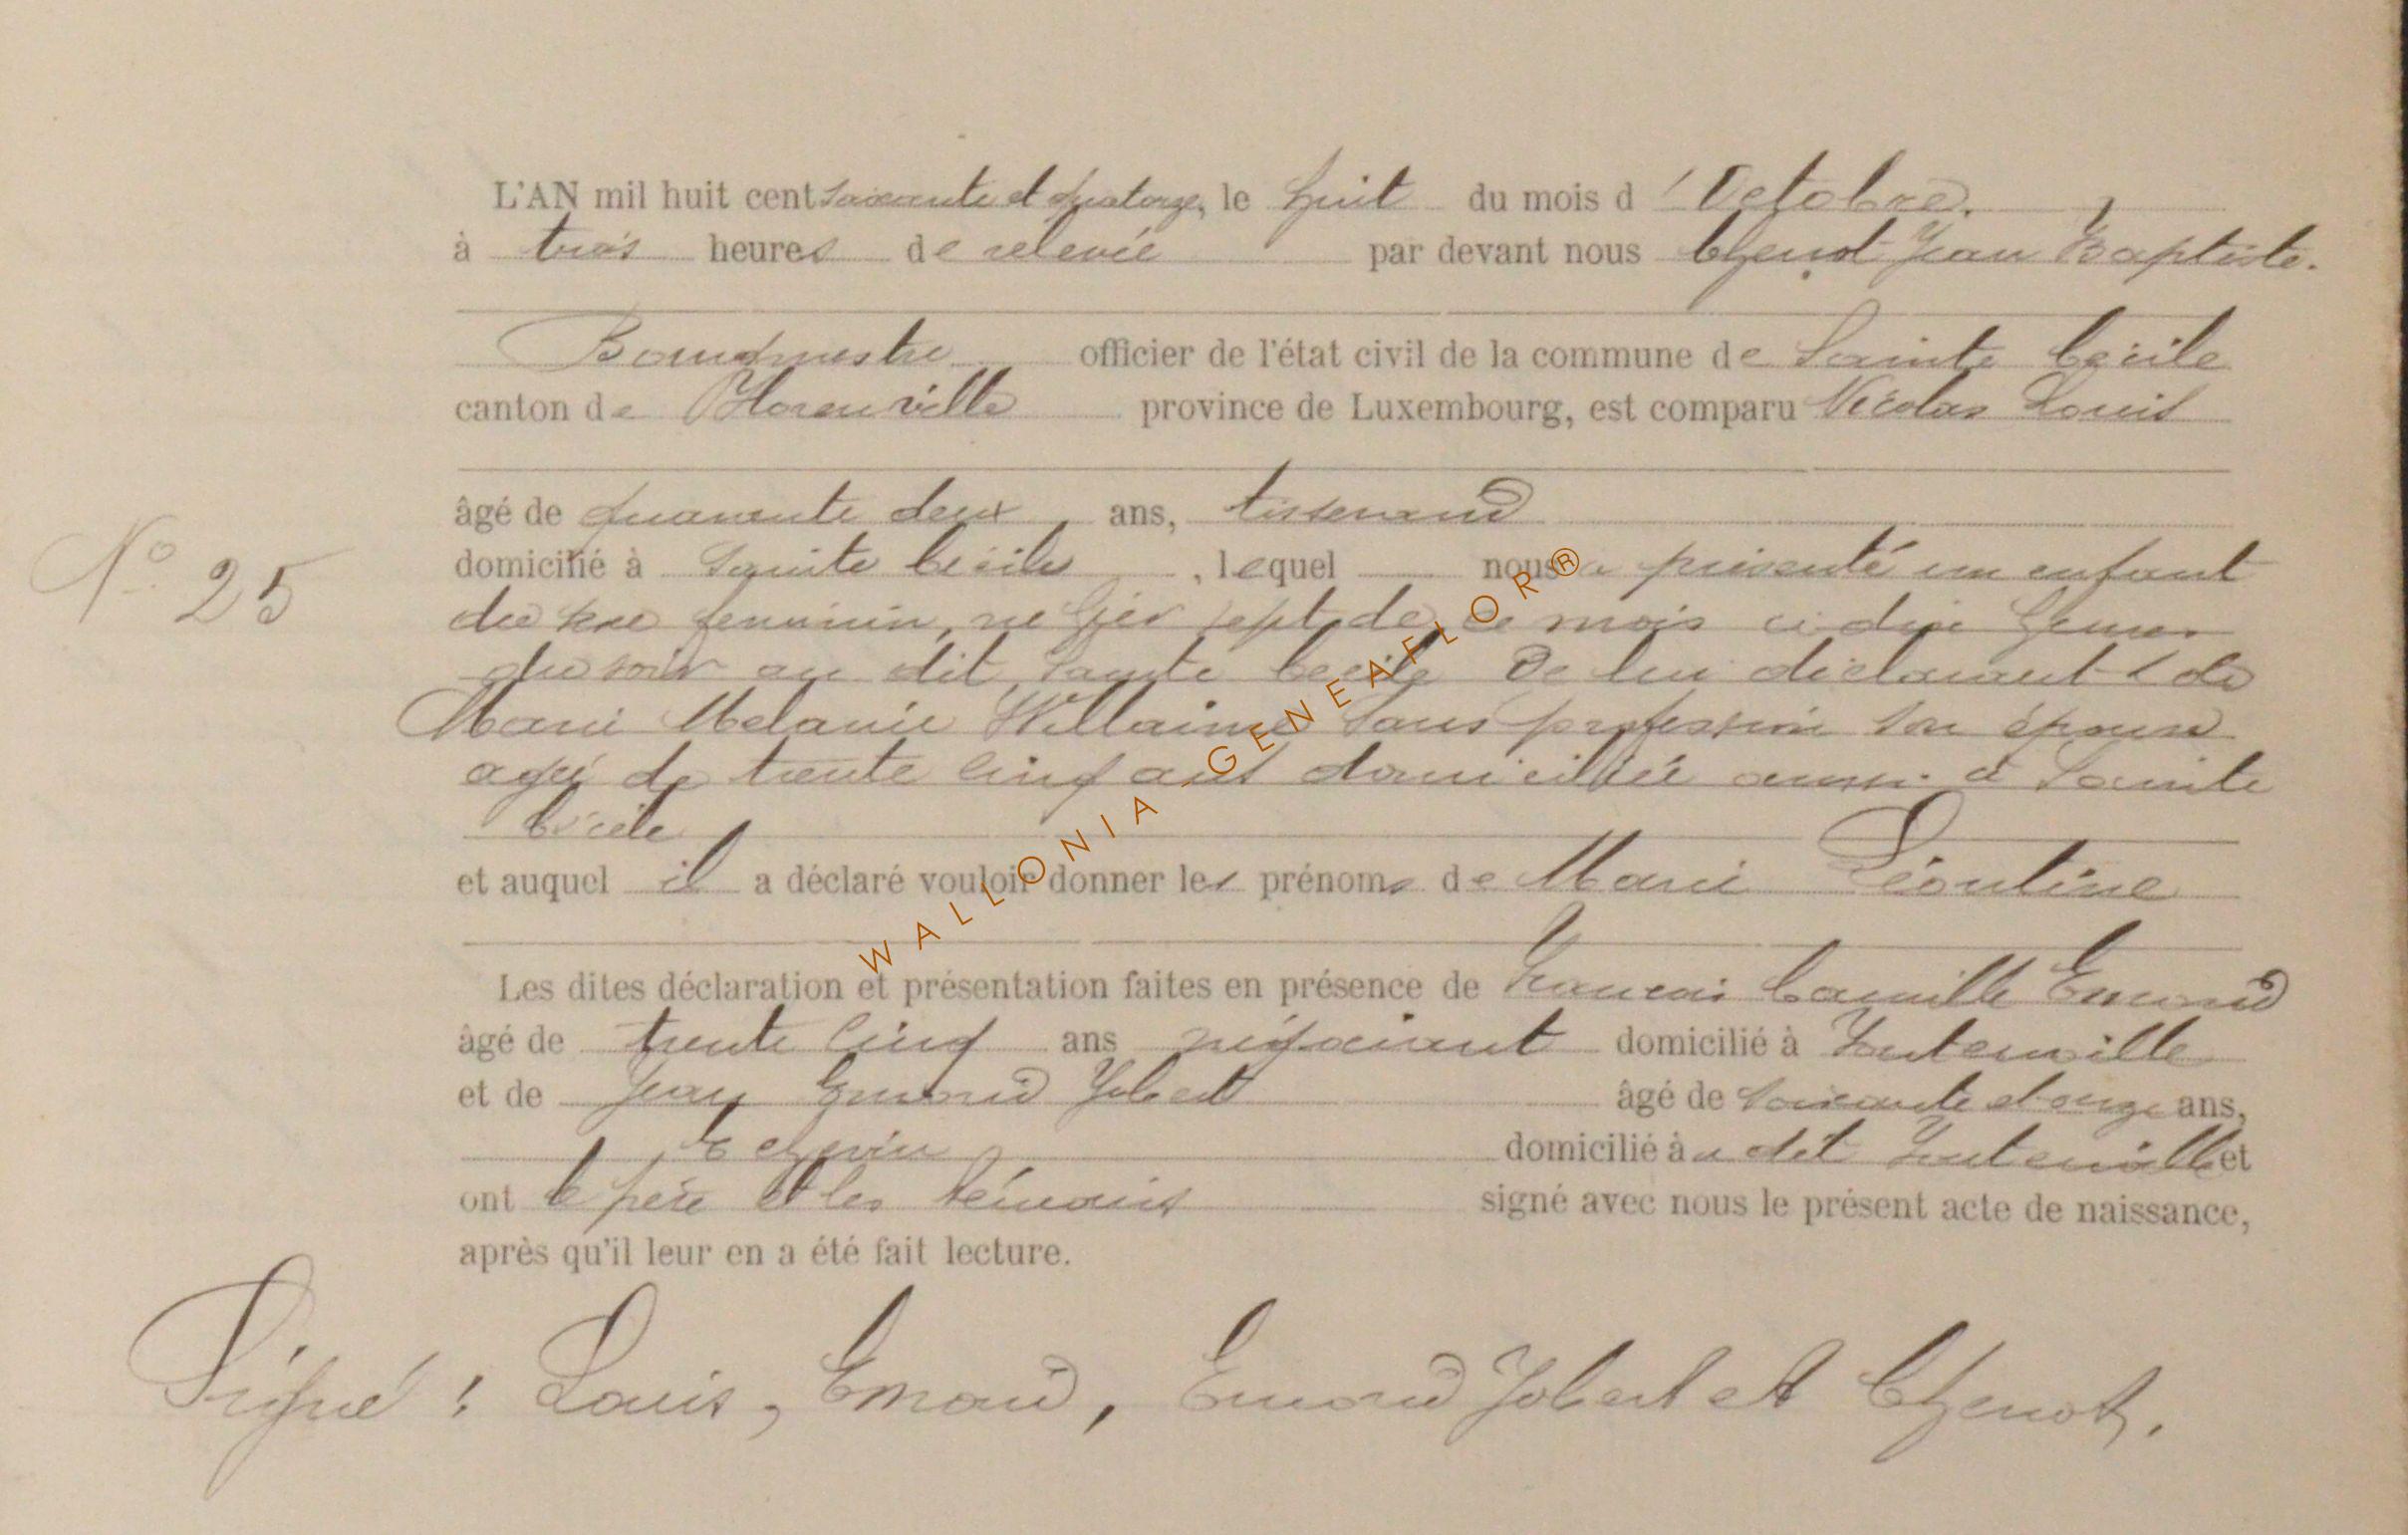 L'AN mil huit cent soixante et quatorze, le huit du mois d'Octobre.
à trois heures de relevée par devant nous Chenot Jean Baptiste.
Bourgmestre officier de l'état civil de la commune de Sainte Cécile
canton de Florenville province de Luxembourg, est comparu Nicolas Louis
âgé de quarante deux ans, tisserand
domicilié à Sainte Cécile, lequel nous a présenté un enfant
N° 25
du sexe feminin, né hier sept de ce mois à dix heures
du soir au dit Sainte Cecile De lui déclarant & de
Marie Melanie Willaime sans profession son épouse
agée de trente cinq ans domiciliée aussi à Sainte
Cécile
et auquel il a déclaré vouloir donner les prénoms de Marie Léontine
Les dites déclaration et présentation faites en présence de Francois Camille Emond
âgé de trente cinq ans négociant domicilié à Fontenoille
et de Jean Emond Jobert âgé de soixante et onze ans,
Echevin domicilié à u dit Fontenoille et
ont le père et les témoins signé avec nous le présent acte de naissance,
après qu'il leur en a été fait lecture.
Signé : Louis, Emond, Emond Jobert et Chenot.
WALLONIA GENEAFLOR®